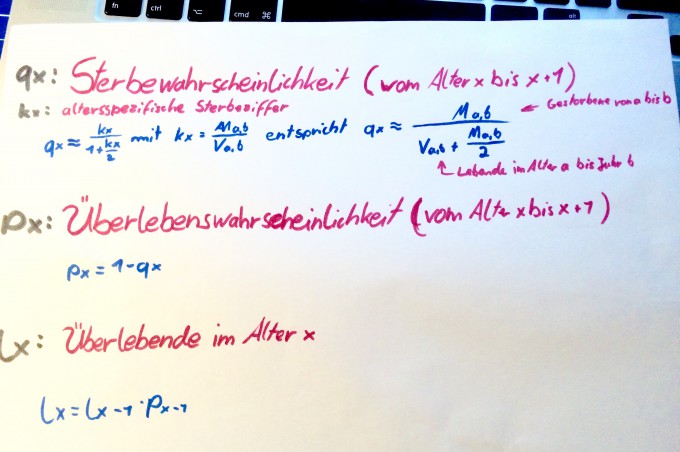 fn ctrl cmd ⌘ alt
qx: Sterbewahrscheinlichkeit (vom Alter x bis x+1)
kx: altersspezifische Sterbeziffer
qx ≈ kx / (1 + kx/2) mit kx = Ma,b / Va,b entspricht qx ≈ Ma,b / (Va,b + Ma,b/2) ← Gestorbene von a bis b
↑ Lebende im Alter a bis Jahr b
px: Überlebenswahrscheinlichkeit (vom Alter x bis x+1)
px = 1-qx
lx: Überlebende im Alter x
lx = lx-1 · px-1